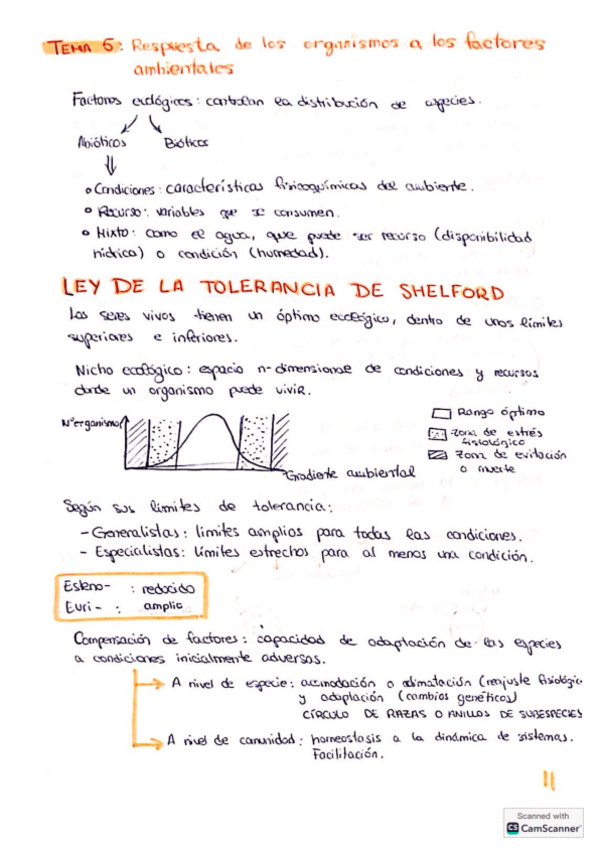 TEMA 5: Respuesta de los organismos a los factores
ambientales
Factores ecológicos: controlan la distribución de especies.
Abióticos Bióticos
Condiciones: características fisicoquímicas del ambiente.
Recurso: variables que se consumen.
Mixto: como el agua, que puede ser recurso (disponibilidad
hídrica) o condición (humedad).
LEY DE LA TOLERANCIA DE SHELFORD
Los seres vivos tienen un óptimo ecológico, dentro de unos límites
superiores e inferiores.
Nicho ecológico: espacio n-dimensional de condiciones y recursos
donde un organismo puede vivir.
Nº organismos
Gradiente ambiental
Rango óptimo
Zona de estrés
fisiológico
Zona de evitación
o muerte
Según sus límites de tolerancia:
- Generalistas: límites amplios para todas las condiciones.
- Especialistas: límites estrechos para al menos una condición.
Esteno- : reducido
Euri- : amplio
Compensación de factores: capacidad de adaptación de las especies
a condiciones inicialmente adversas.
A nivel de especie: acomodación o aclimatación (reajuste fisiológic
y adaptación (cambios genéticos)
CÍRCULO DE RAZAS O ANILLOS DE SUBESPECIES
A nivel de comunidad: homeostasis a la dinámica de sistemas.
Facilitación.
11
Scanned with
CS CamScanner